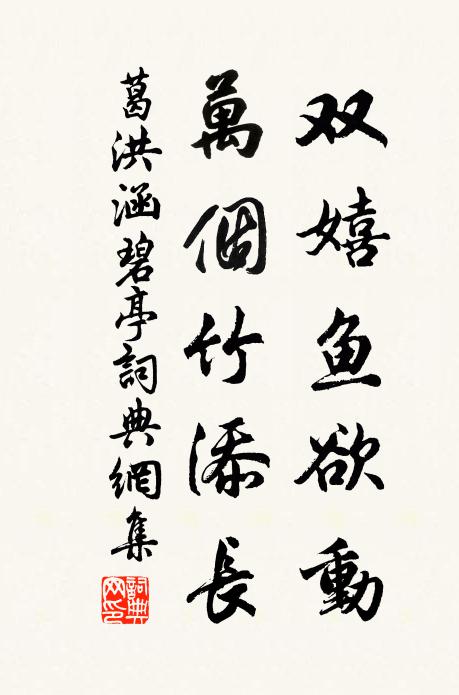 双嬉鱼欲動
萬個竹添長
葛洪涵碧亭詞典網集
詞典网印